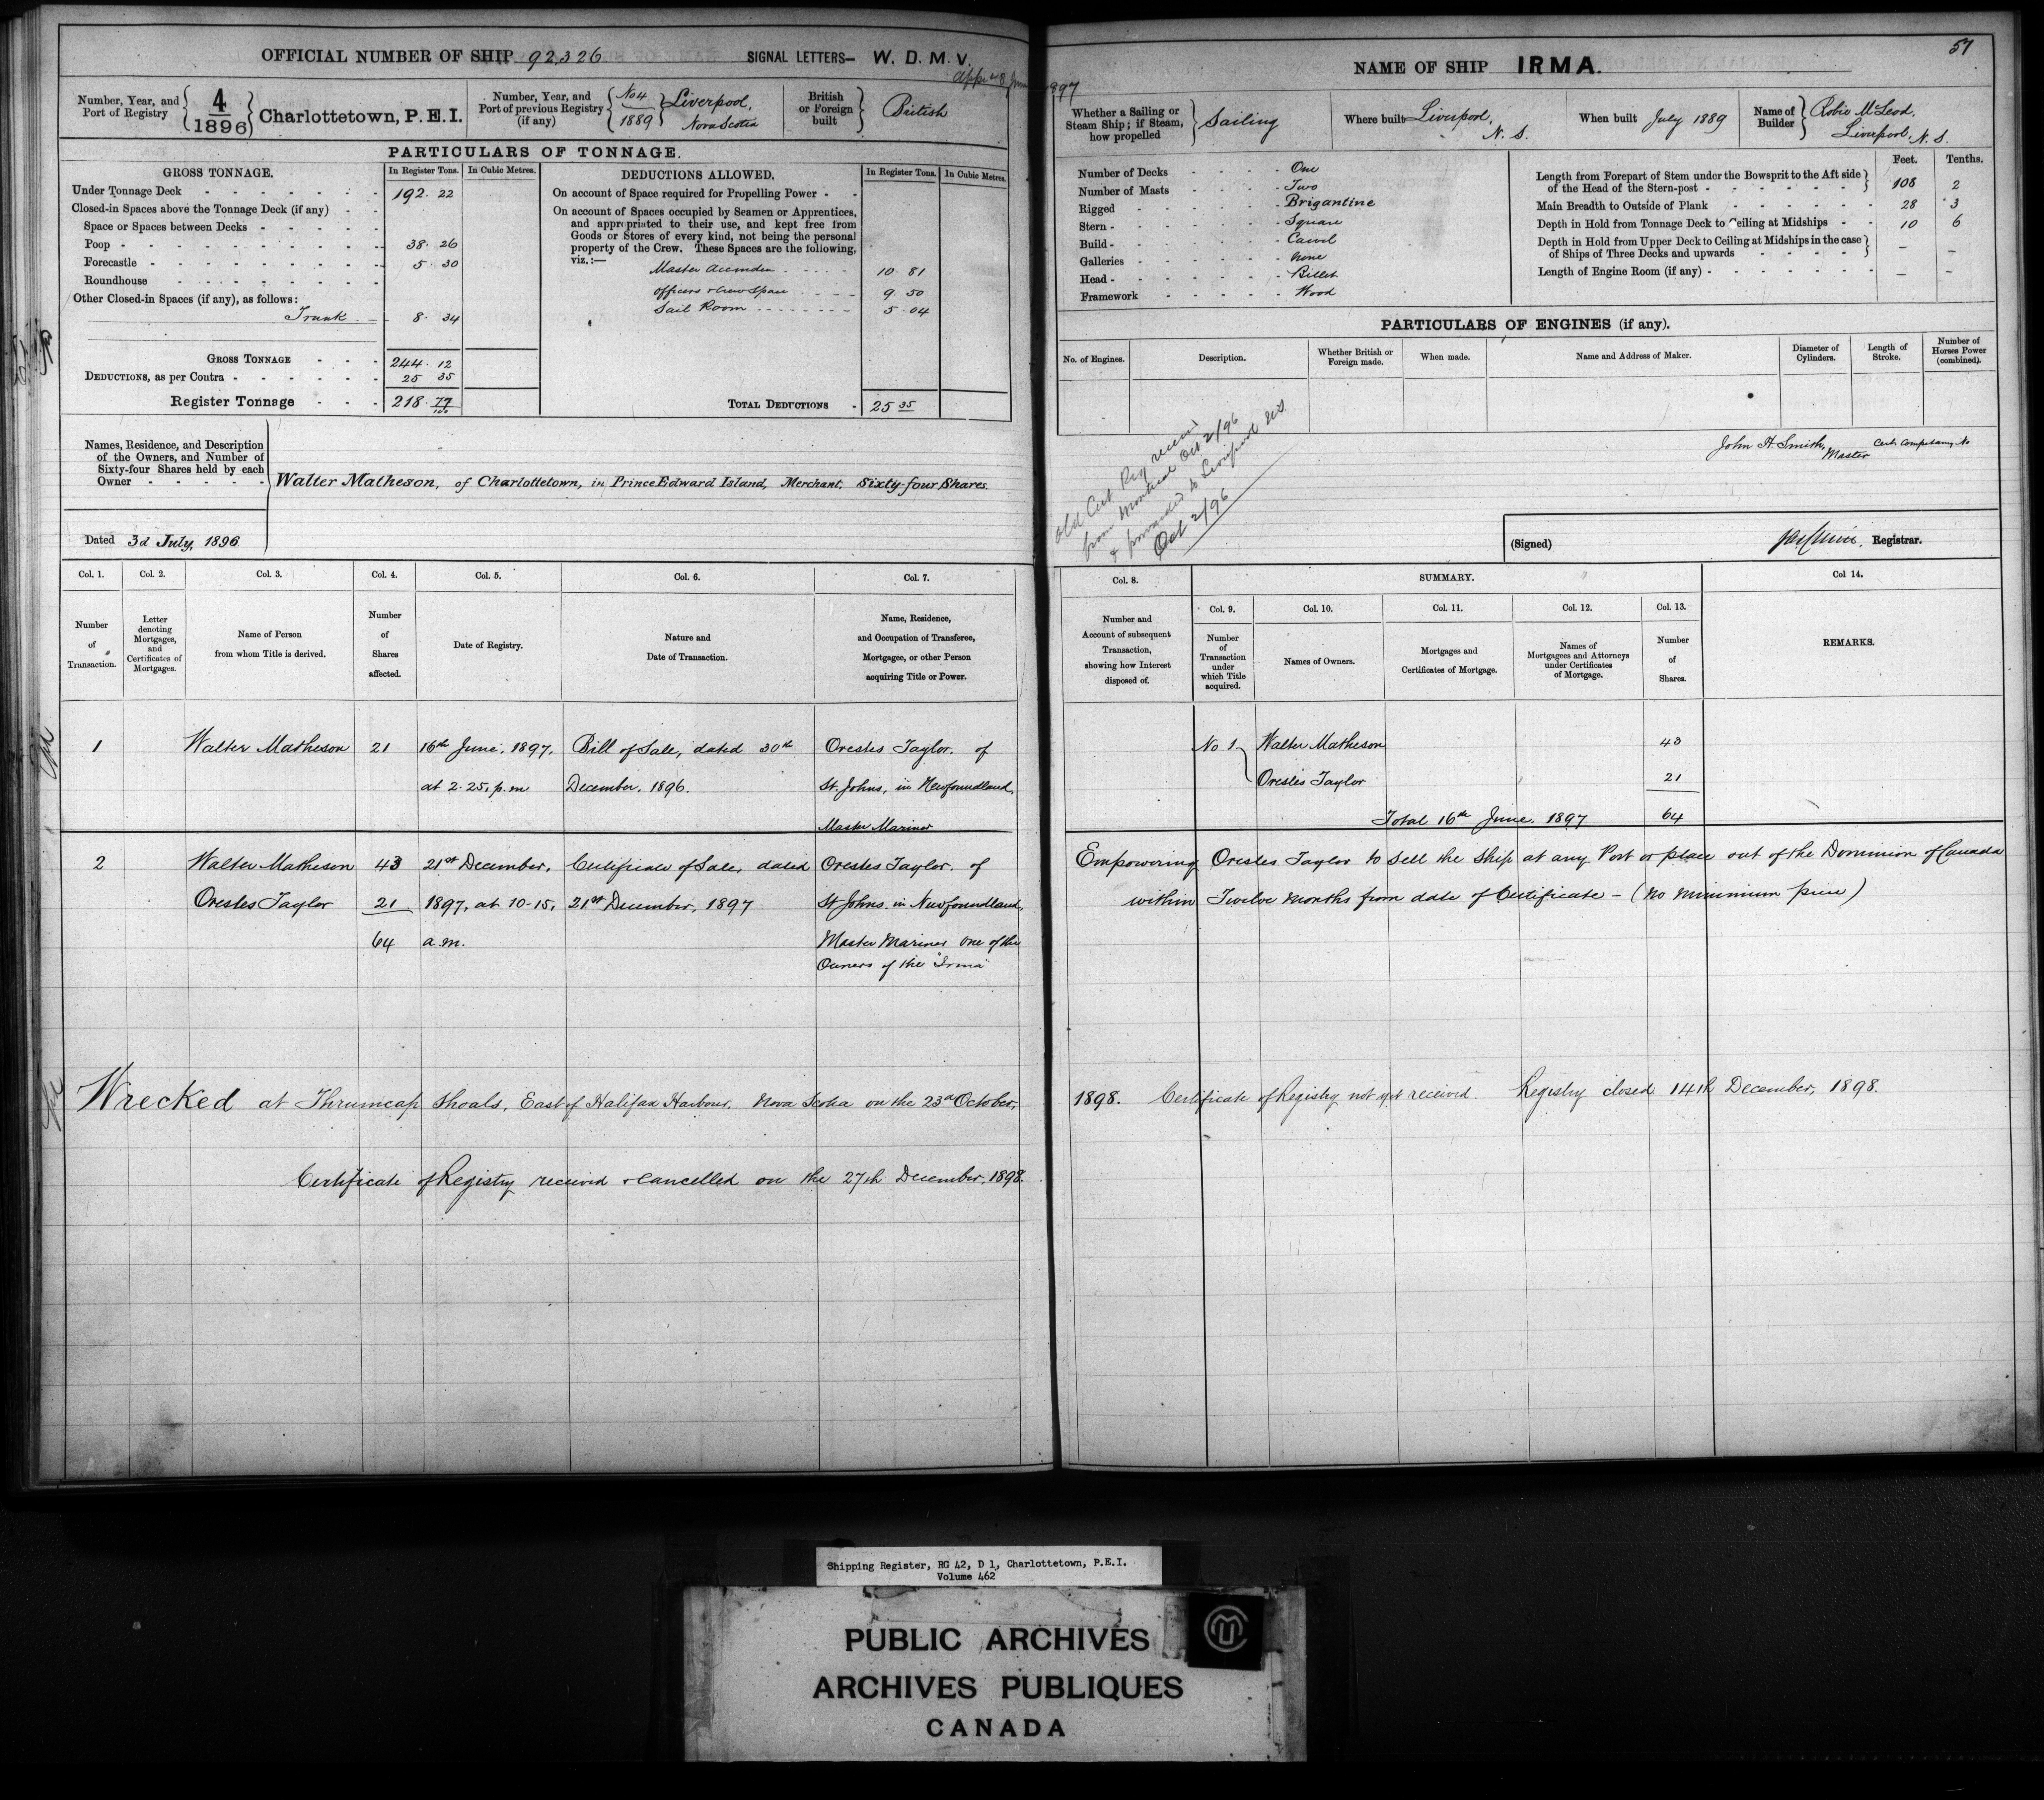 OFFICIAL NUMBER OF SHIP 92,326 SIGNAL LETTERS— W. D. M. V.
Number, Year, and Port of Registry 4 1896 Charlottetown, P.E.I.
Number, Year, and Port of previous Registry (if any) No 4 1889 Liverpool, Nova Scotia
British or Foreign built British
PARTICULARS OF TONNAGE.
GROSS TONNAGE. In Register Tons. In Cubic Metres.
Under Tonnage Deck 192. 22
Closed-in Spaces above the Tonnage Deck (if any)
Space or Spaces between Decks
Poop 38. 26
Forecastle 5. 30
Roundhouse
Other Closed-in Spaces (if any), as follows:
Trunk 8. 34
GROSS TONNAGE 244. 12
DEDUCTIONS, as per Contra 25 35
Register Tonnage 218. 77/100
DEDUCTIONS ALLOWED. In Register Tons. In Cubic Metres.
On account of Space required for Propelling Power
On account of Spaces occupied by Seamen or Apprentices,
and appropriated to their use, and kept free from
Goods or Stores of every kind, not being the personal
property of the Crew. These Spaces are the following,
viz.:—
Master 10. 81
Officers & Crew Space 9. 50
Sail Room 5. 04
TOTAL DEDUCTIONS 25 35
Names, Residence, and Description
of the Owners, and Number of
Sixty-four Shares held by each
Owner
Walter Matheson, of Charlottetown, in Prince Edward Island, Merchant, Sixty-four Shares.
Dated 3d July, 1896
57
NAME OF SHIP IRMA.
1897
Whether a Sailing or Steam Ship; if Steam, how propelled Sailing
Where built Liverpool, N. S.
When built July 1889
Name of Builder Robie McLeod, Liverpool, N. S.
Number of Decks One
Number of Masts Two
Rigged Brigantine
Stern Square
Build Carvel
Galleries None
Head Billet
Framework Wood
Feet. Tenths.
Length from Forepart of Stem under the Bowsprit to the Aft side
of the Head of the Stern-post 108 2
Main Breadth to Outside of Plank 28 3
Depth in Hold from Tonnage Deck to Ceiling at Midships 10 6
Depth in Hold from Upper Deck to Ceiling at Midships in the case
of Ships of Three Decks and upwards — —
Length of Engine Room (if any) — —
PARTICULARS OF ENGINES (if any).
No. of Engines. Description. Whether British or Foreign made. When made. Name and Address of Maker. Diameter of Cylinders. Length of Stroke. Number of Horses Power (combined).
Old Cert Reg
from Montreal Oct 2/96
& forwarded to Liverpool N.S.
Oct 2/96
John H. Smith, Master
(Signed) Registrar.
Col. 1. Col. 2. Col. 3. Col. 4. Col. 5. Col. 6. Col. 7.
Number of Transaction.
Letter denoting Mortgages, and Certificates of Mortgages.
Name of Person from whom Title is derived.
Number of Shares affected.
Date of Registry.
Nature and Date of Transaction.
Name, Residence, and Occupation of Transferee, Mortgagee, or other Person acquiring Title or Power.
Col. 8. SUMMARY. Col 14.
Col. 9. Col. 10. Col. 11. Col. 12. Col. 13.
Number and Account of subsequent Transaction, showing how Interest disposed of.
Number of Transaction under which Title acquired.
Names of Owners.
Mortgages and Certificates of Mortgage.
Names of Mortgagees and Attorneys under Certificates of Mortgage.
Number of Shares.
REMARKS.
1 Walter Matheson 21 16th June, 1897, Bill of Sale, dated 30th Orestes Taylor. of
at 2.25, p.m December, 1896. St. Johns, in Newfoundland,
Master Mariner
No 1 Walter Matheson 43
Orestes Taylor 21
Total 16th June, 1897 64
2 Walter Matheson 43 21st December, Certificate of Sale, dated Orestes Taylor, of
Orestes Taylor 21 1897, at 10-15, 21st December, 1897 St Johns in Newfoundland,
64 a.m. Master Mariner one of the
Owners of the "Irma"
Empowering Orestes Taylor to sell the ship at any Port or place out of the Dominion of Canada
within Twelve months from date of Certificate – (No minimum price)
Wrecked at Thrumcap Shoals, East of Halifax Harbour, Nova Scotia on the 23rd October,
1898. Certificate of Registry not yet received. Registry closed 14th December, 1898.
Certificate of Registry received & cancelled on the 27th December, 1898.
Shipping Register, RG 42, D 1, Charlottetown, P.E.I.
Volume 462
PUBLIC ARCHIVES
ARCHIVES PUBLIQUES
CANADA